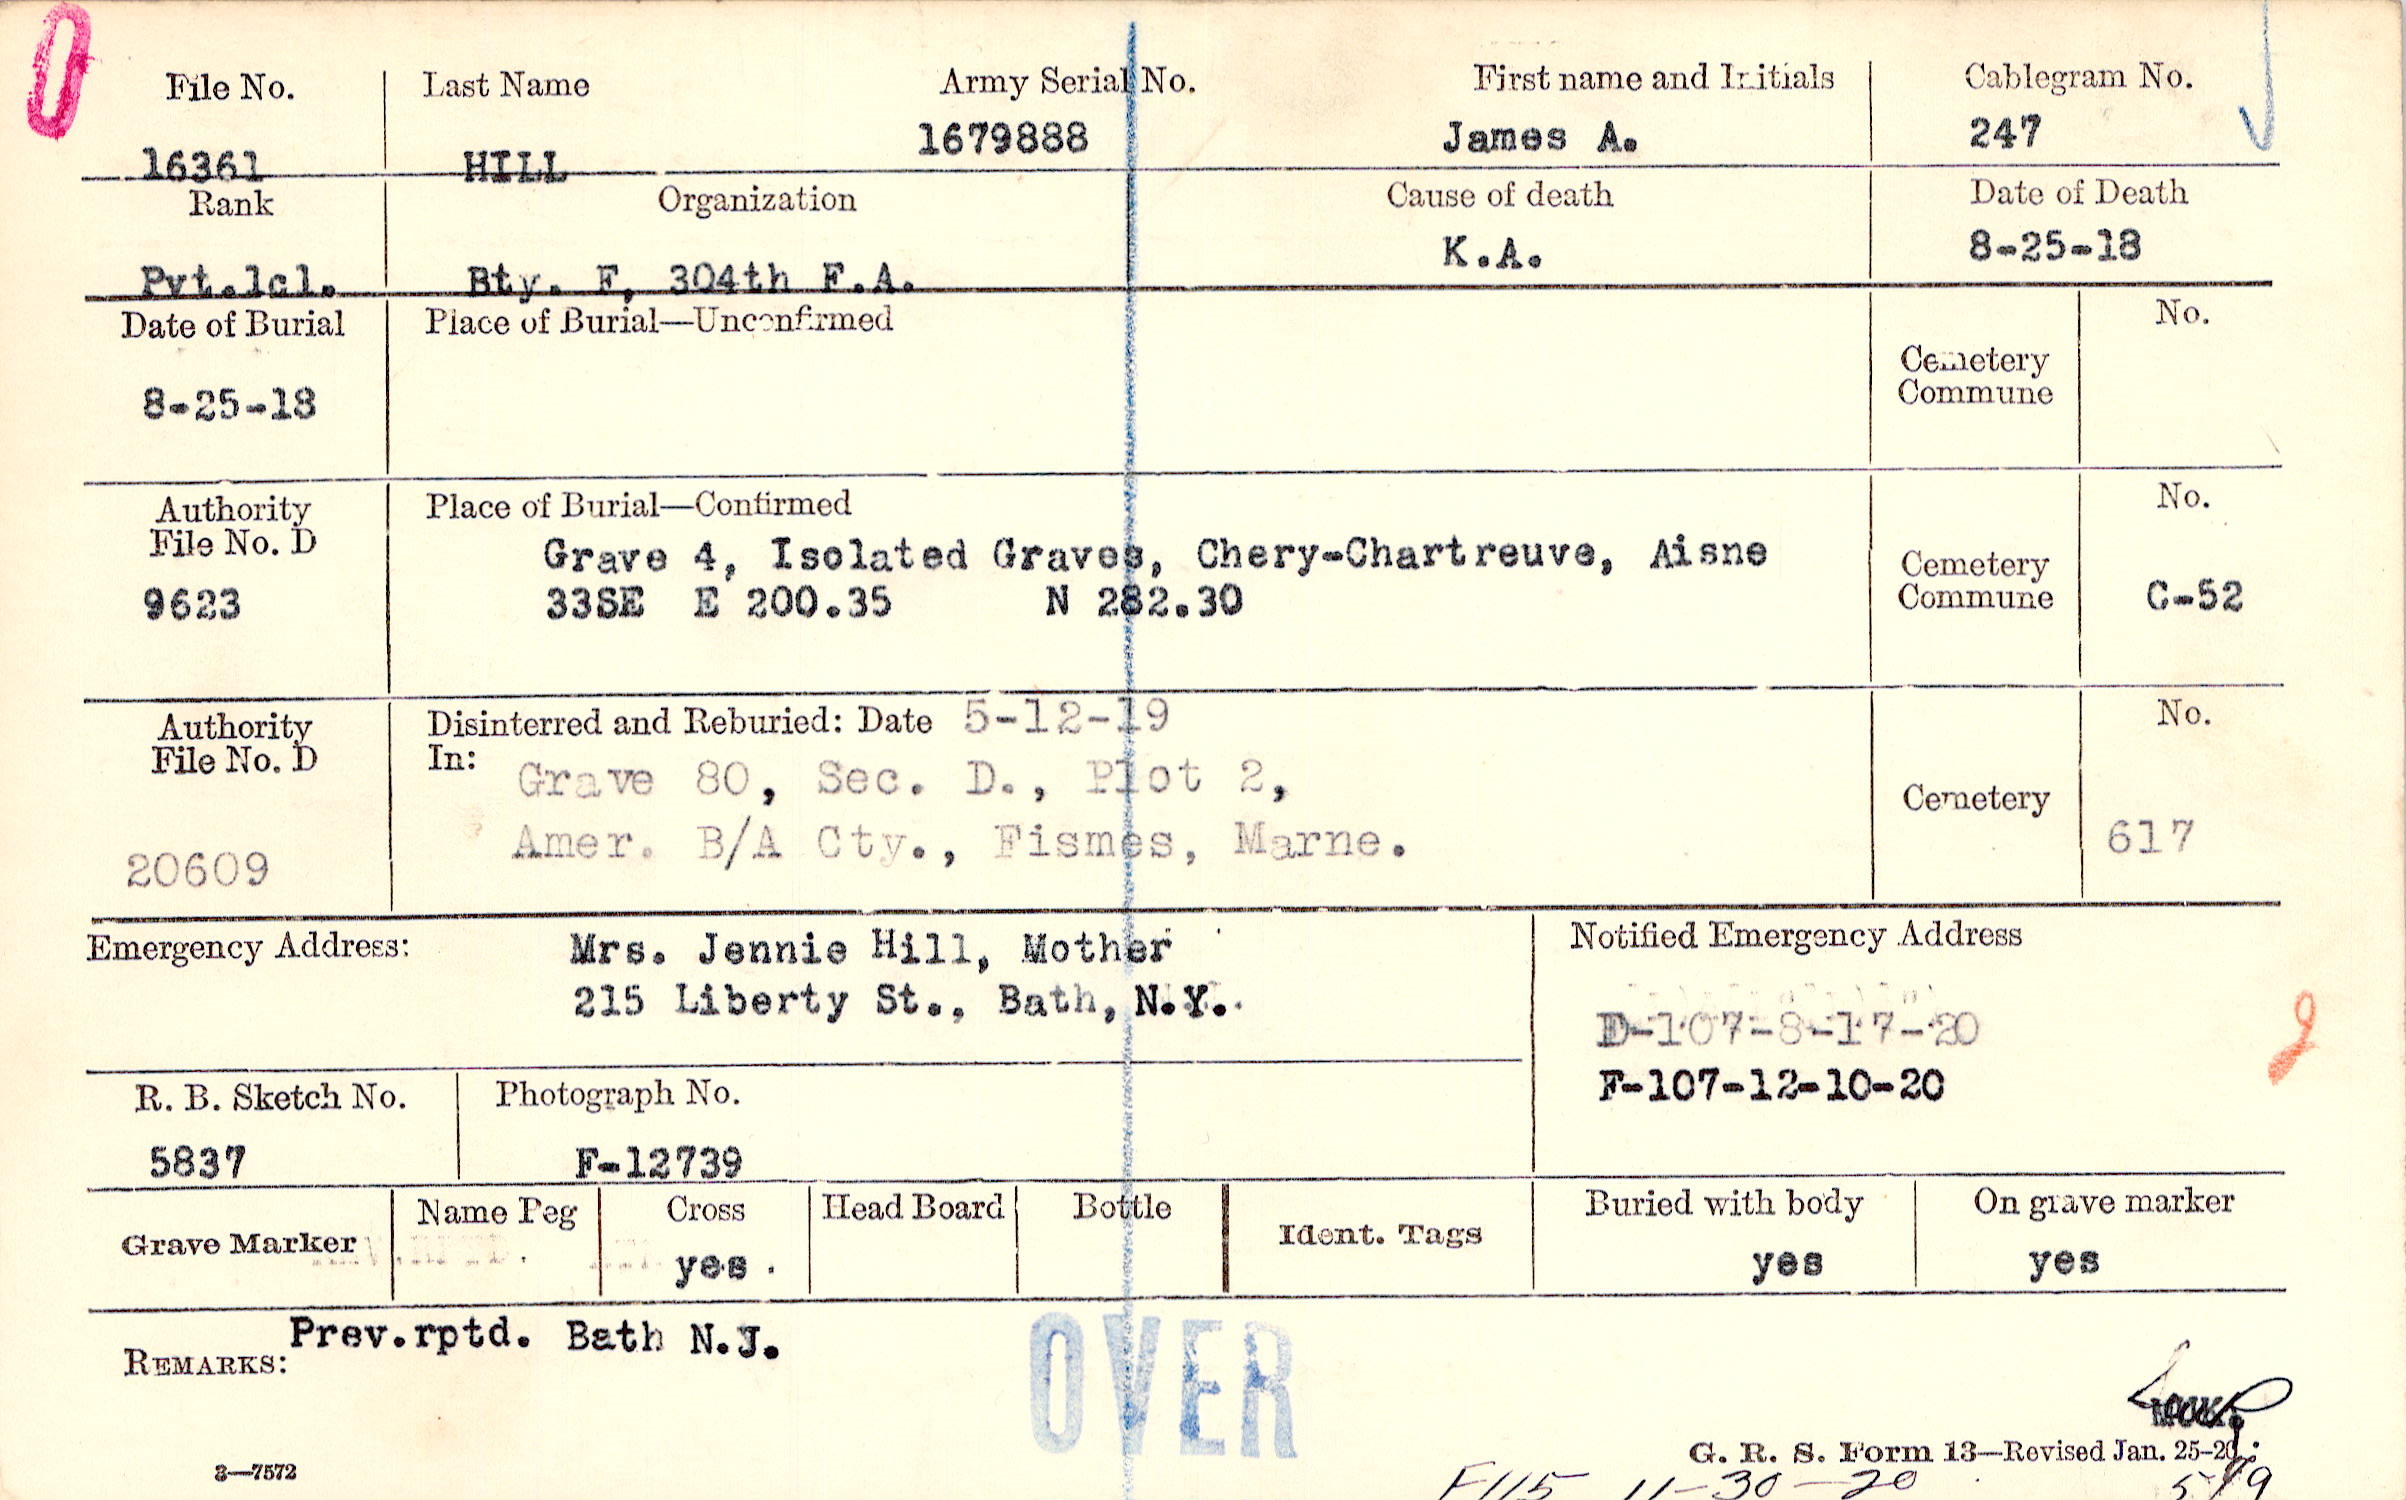 File No. Last Name Army Serial No. First name and Initials Cablegram No.
16361 HILL 1679888 James A. 247
Rank Organization Cause of death Date of Death
Pvt.lcl. Bty. F, 304th F.A. K.A. 8-25-18
Date of Burial Place of Burial—Unconfirmed No.
8-25-18 Cemetery
Commune
Authority Place of Burial—Confirmed No.
File No. D Grave 4, Isolated Graves, Chery-Chartreuve, Aisne Cemetery
9623 33SE E 200.35 N 282.30 Commune C-52
Authority Disinterred and Reburied: Date 5-12-19 No.
File No. D In: Grave 80, Sec. D., Plot 2, Cemetery
20609 Amer. B/A Cty., Fismes, Marne. 617
Emergency Address: Mrs. Jennie Hill, Mother Notified Emergency Address
215 Liberty St., Bath, N.Y. D-107-8-17-20
F-107-12-10-20
R. B. Sketch No. Photograph No.
5837 F-12739
Grave Marker Name Peg Cross Head Board Bottle Ident. Tags Buried with body On grave marker
yes yes yes
REMARKS: Prev.rptd. Bath N.J.
OVER
3—7572 G. R. S. Form 13—Revised Jan. 25-20
F115 11-30-20